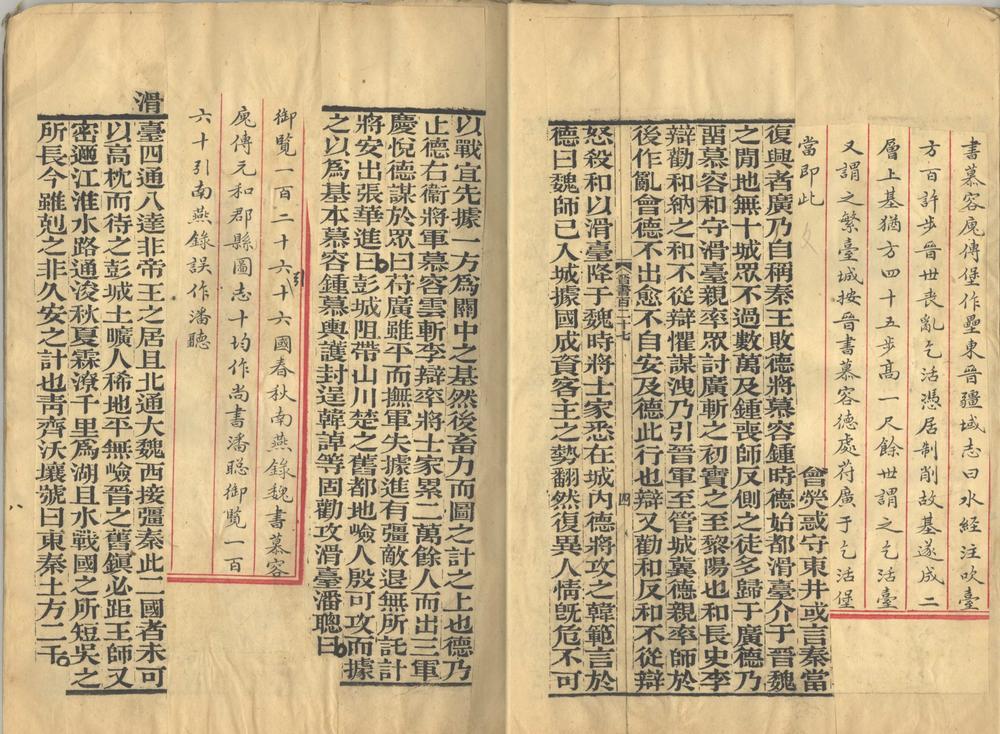 書慕容廆傳堡作壘東晉疆域志曰水經注吹臺
方百許步晉世喪亂乞活憑居制削故基遂成二
層上基猶方四十五步髙一尺餘世謂之乞活臺
又謂之繁臺城按晉書慕容德處苻廣于乞活堡
當即此
會熒惑守東井或言秦當
復興者廣乃自稱秦王敗德將慕容鍾時德始都滑臺介于晉魏
之閒地無十城眾不過數萬及鍾喪師反側之徒多歸于廣德乃
畱慕容和守滑臺親率眾討廣斬之初寶之至黎陽也和長史李
辯勸和納之和不從辯懼謀洩乃引晉軍至管城冀德親率師於
後作亂會德不出愈不自安及德此行也辯又勸和反和不從辯
晉書百二十七
四
怒殺和以滑臺降于魏時將士家悉在城内德將攻之韓範言於
德曰魏師已入城據國成資客主之勢翻然復異人情旣危不可
以戰宜先據一方爲關中之基然後畜力而圖之計之上也德乃
止德右衞將軍慕容雲斬李辯率將士家累二萬餘人而出三軍
慶悅德謀於眾曰苻廣雖平而撫軍失據進有彊敵退無所託計
將安出張華進曰彭城阻帶山川楚之舊都地嶮人殷可攻而據
之以爲基本慕容鍾慕輿護封逞韓𧨳等固勸攻滑臺潘聰曰
御覽一百二十六引十六國春秋南燕錄魏書慕容
廆傳元和郡縣圖志十均作尚書潘聡御覽一百
六十引南燕錄誤作潘聽
滑
臺四通八達非帝王之居且北通大魏西接彊秦此二國者未可
以高枕而待之彭城土曠人稀地平無嶮晉之舊鎭必距王師又
密邇江淮水路通浚秋夏霖潦千里爲湖且水戰國之所短吳之
所長今雖剋之非久安之計也靑齊沃壤號曰東秦土方二千